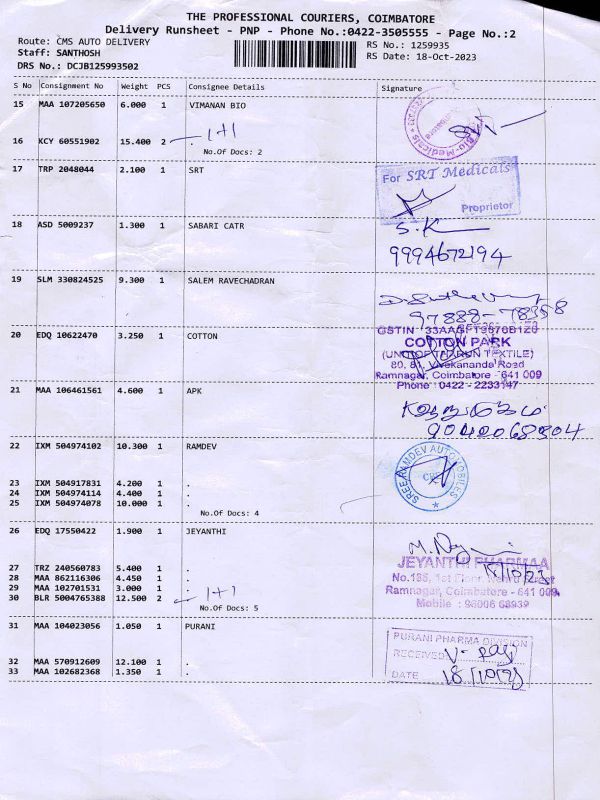 THE PROFESSIONAL COURIERS, COIMBATORE
Delivery Runsheet - PNP - Phone No.:0422-3505555 - Page No.:2
Route: CMS AUTO DELIVERY
RS No.: 1259935
Staff: SANTHOSH
RS Date: 18-Oct-2023
DRS No.: DCJB125993502
S No Consignment No Weight PCS Consignee Details Signature
15 MAA 107205650 6.000 1 VIMANAN BIO
1+1
16 KCY 60551902 15.400 2 .
No.Of Docs: 2
17 TRP 2048044 2.100 1 SRT
For SRT Medicals
Proprietor
18 ASD 5009237 1.300 1 SABARI CATR
S.K
9994672194
19 SLM 330824525 9.300 1 SALEM RAVECHADRAN
97888-78358
20 EDQ 10622470 3.250 1 COTTON
COTTON PARK
(UNIT OF THARUN TEXTILE)
80, 81, Vivekananda Road
Ramnagar, Coimbatore - 641 009
Phone : 0422 - 2233147
21 MAA 106461561 4.600 1 APK
22 IXM 504974102 10.300 1 RAMDEV
SREE RAMDEV AUTOMOBILES
CBE
23 IXM 504917831 4.200 1 .
24 IXM 504974114 4.400 1 .
25 IXM 504974078 10.000 1 .
No.Of Docs: 4
26 EDQ 17550422 1.900 1 JEYANTHI
JEYANTHI PHARMAA
27 TRZ 240560783 5.400 1 .
28 MAA 862116306 4.450 1 .
No.185, 1st Floor, Nehru Street
29 MAA 102701531 3.000 1 .
Ramnagar, Coimbatore - 641 009.
30 BLR 5004765388 12.500 2 . 1+1
Mobile : 96006 68939
No.Of Docs: 5
31 MAA 104023056 1.050 1 PURANI
PURANI PHARMA DIVISION
RECEIVED
32 MAA 570912609 12.100 1 .
33 MAA 102682368 1.350 1 .
DATE 18/10/23